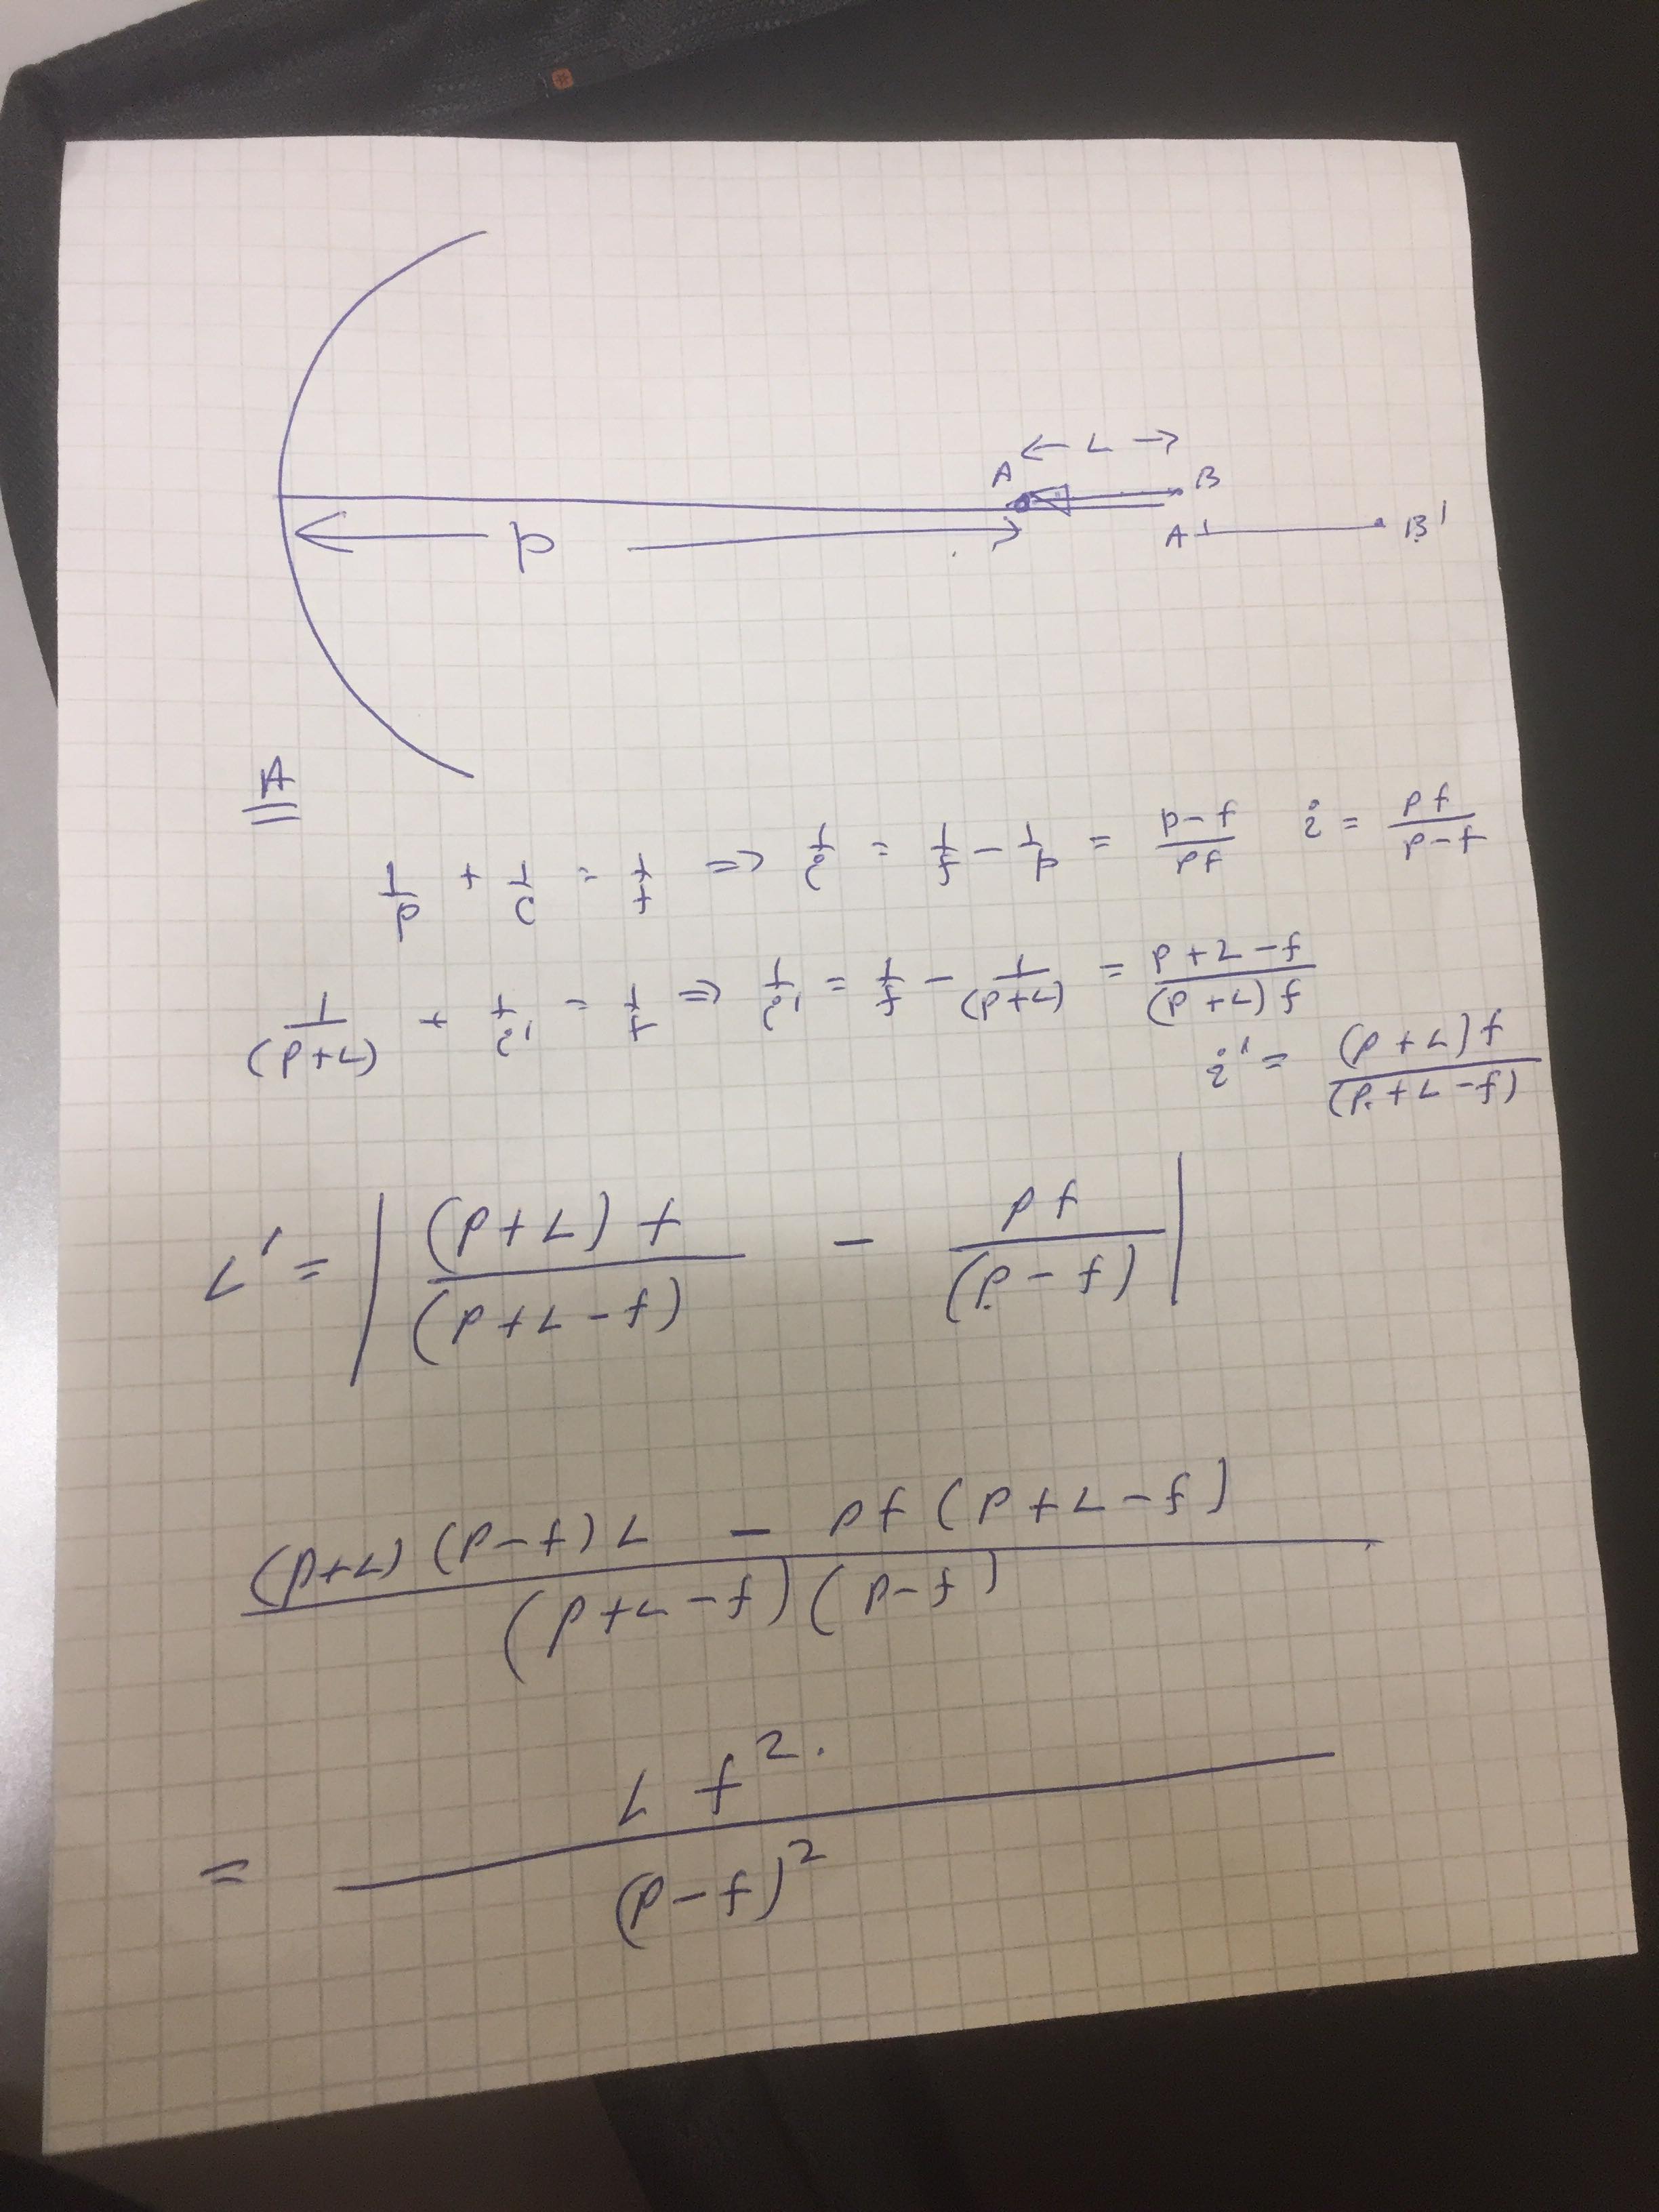 L
A B
p A' B'
A
1/p + 1/i = 1/f => 1/i = 1/f - 1/p = (p-f)/(pf) i = pf/(p-f)
1/(p+L) + 1/i' = 1/f => 1/i' = 1/f - 1/(p+L) = (p+L-f)/((p+L)f)
i' = (p+L)f/(p+L-f)
L' = | (p+L)f/(p+L-f) - pf/(p-f) |
((p+L)(p-f)L - pf(p+L-f))/((p+L-f)(p-f))
= L f²/(p-f)²